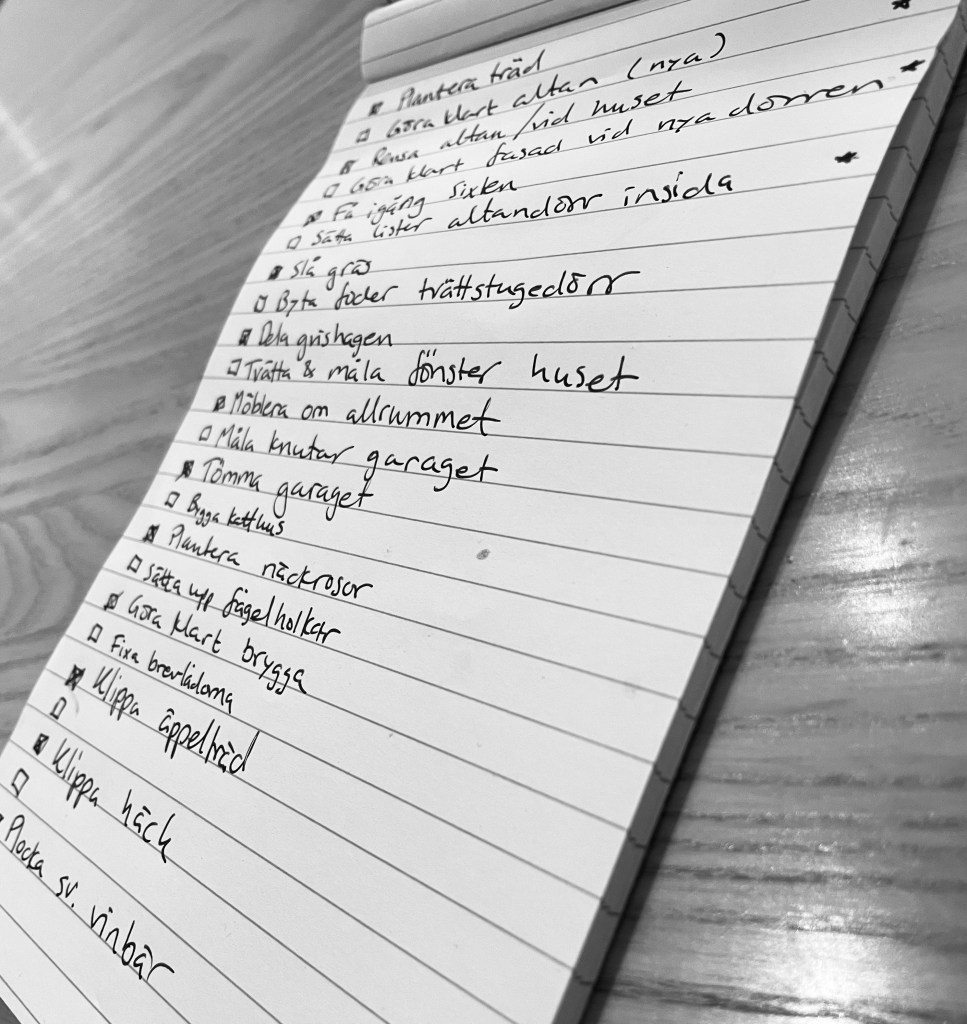 Plantera träd
Göra klart altan (nya)
Rensa altan/vid huset
Göra klart fasad vid nya dörren
Få igång sixten
Sätta lister altandörr insida
Slå gräs
Byta foder tvättstugedörr
Dela grishagen
Tvätta & måla fönster huset
Möblera om allrummet
Måla knutar garaget
Tömma garaget
Bygga katthus
Plantera näckrosor
Sätta upp fågelholkar
Göra klart brygga
Fixa brevlådorna
Klippa äppelträd
Klippa häck
Plocka sv. vinbär